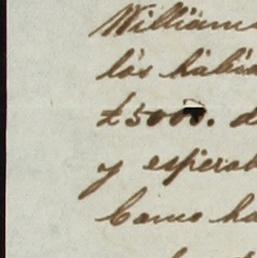 Williams
los había
£5000. d
y esperab
Como ha